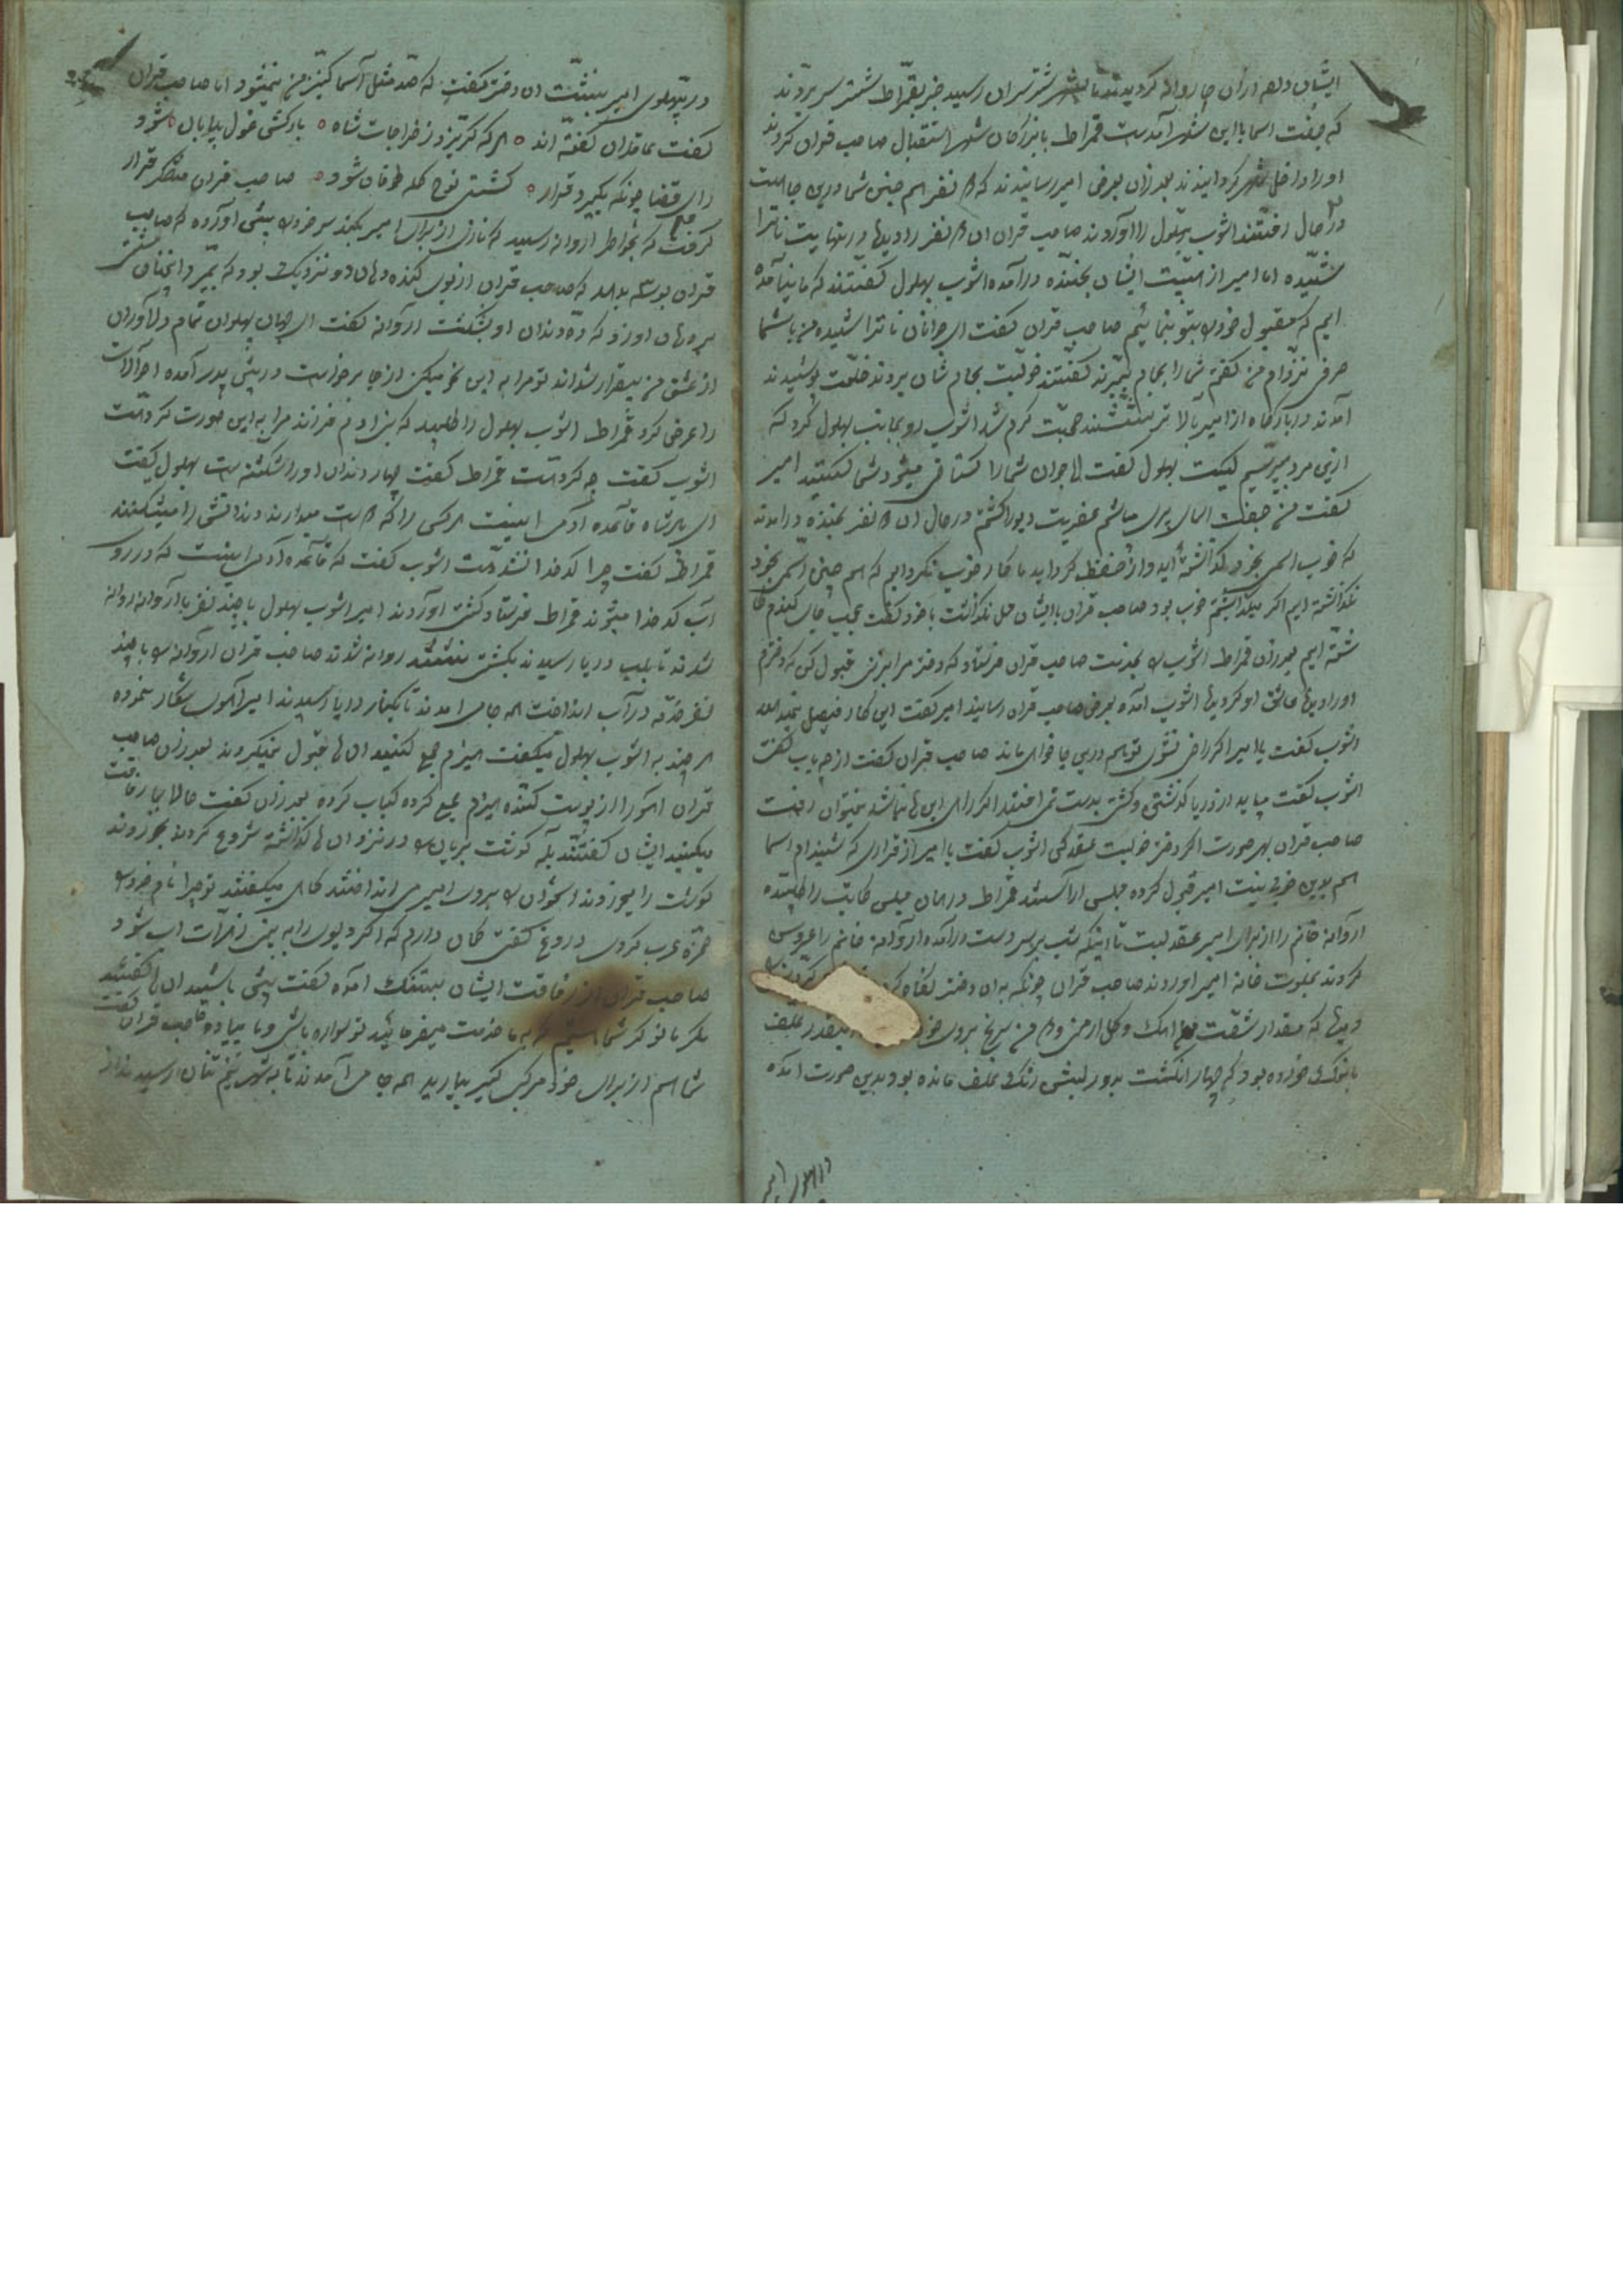 ایشان دلهم ازان جا روانه کردیدند تا بشهر شترسران رسید خبر بقمراط شتر سر بردند
که جفت اسما باین شهر آمدست قمراط با بزرکان شهر استقبال صاحب قران کردند
اورا داخل شهر کردانیدند بعد ازان بعرض امیر رسانیدند که نفر هم جنس شما درین جا هست
در حال رفتند اشوب بهلول را آوردند صاحب قران ان نفر را دید در نهایت ناترا
شیده اما امیر از هیبت ایشان بخنده درآمده اشوب بهلول کفتند که ما بنیاآمده
ایم که مقبول خود را بتو بنمائیم صاحب قران کفت ای جوانان ناتراشیده من باشما
حرف نزدم من کفتم شمارا بحمام ببرند کفتند خوبست بحمام شان بردند خلعت پوشیدند
آمدند در بارکاه از امیر بالاتر نشستند صحبت کرم شد اشوب رو بجانب بهلول کرد که
ازین مرد بپرسیم کیست بهلول کفت ای جوان شمارا کستاخی میشود شما کیستید امیر
کفت من جفت اسمای پری میباشم عفریت دیو را کشتم در حال ان نفر بخنده درامدند
که خوب اسمی بخود کذاشته اید و از حفظ کرداید ما کار خوب نکردایم که اسم چنین بخود
نکذاشته ایم اکر میکذاشتیم خوب بود صاحب قران باایشان حمل نکذاشت باخود کفت عجب جای
شته ایم بعد ازان قمراط اشوب را بخدمت صاحب قران فرستاد که دختر مرا بزنی قبول کن که دخترم
اورا دیده عاشق او کردیده اشوب آمده بعرض صاحب قران رسانید امیر کفت این کار فیصل نمییابد
اشوب کفت یا امیر اکر راضی نشوی تو هم درین جا خواهی ماند صاحب قران کفت از چه باب کفت
اشوب کفت میباید از دریا کذشتی و کشتی بدست نمی افتد اکر رای این ها نباشد نمیتوان رفت
صاحب قران بهر صورت اکر دختر خوبست عقد کن اشوب کفت یا امیر از قراری که شنیدم اسما
هم باین خوبی نیست امیر قبول کرده مجلس آراستند قمراط در همان مجلس کاتب را طلبیده
اروانه خانم را از برای امیر عقد بست تا اینکه شب بر سر دست درآمده اروانه خانم را عروس
کردند بخلوت خانه امیر اوردند صاحب قران چونکه به ان دختر نکاه کرد
دید که مقدار شفت اهک و کل ارمنی و من سریخ بروی خو اینقدر علف
بانوک خورده بود که چهار انکشت بدور لبش رنک علف مانده بود بدین صورت آمده
در پهلوی امیر
در پهلوی امیر بنشست ان دختر کفت که صد مثل آسما کنیز من نمیشود اما صاحب قران
کفت عاقلان کفته اند هر که کریزد ز خراجات شاه بارکش غول بیابان شود
رای قضا چونکه بکیرد قرار کشتی نوح کله طوفان شود صاحب قران متفکر قرار
کرفت که بخاطر اروانه رسید که نازی از برای امیر بکند سر خود را پیش آورده که صاحب
قران بوسه بدهد که صاحب قران از بوی کنده دهان او نزدیک بود که بمیرد انچنان مشتی
بر دهان او زد که ده دندان او بشکست اروانه کفت ای جهان پهلوان تمام دلاوران
از عشق من بیقرار شداند تو مرا به این نحو میکنی از جا برخواست در پیش پدر آمده احوالات
را عرض کرد قمراط اشوب بهلول را طلبید که بنی ادم فرزند مرا به این صورت کردهست
اشوب کفت چه کردهست قمراط کفت چهار دندان اورا شکسته ست بهلول کفت
ای پادشاه قاعده آدمی اینست هر کس را که دوست میدارند دندانش را میشکنند
قمراط کفت چرا کدخدا نشدهست اشوب کفت که قاعده آدمی اینست که در روی
آب کدخدا میشوند قمراط فرستاد کشتی اوردند امیر اشوب بهلول با چند نفر با اروانه روانه
شدند تا بلب دریا رسیدند بکشتی نشستند روانه شدند صاحب قران اروانه را با چند
نفر خدمه در آب انداخت همه جا می امدند تا بکنار دریا رسیدند امیر آهوی شکار نموده
هر چند به اشوب بهلول میکفت هیزم جمع کنید ان ها قبول نمیکردند بعد ازان صاحب
قران اهو را از پوست کنده هیزم جمع کرده کباب کرده بعد ازان کفت حالا بیا رفاقت
میکنید ایشان کفتند بلی کوشت بریان را در نزد ان ها کذاشته شروع کردند بخوردند
کوشت را میخوردند استخوان را بروی امیر می انداختند کاهی میکفتند تو چرا نام خود را
حمزه عرب کردی دروغ کفتی کمان دارم که اکر دیوی را به بینی زهرات آب شود
صاحب قران از رفاقت ایشان بتنک آمده کفت پیش باشید ان ها کفتند
مکر ما نوکر شما هستیم که به ما خدمت میفرمائید تو سواره باشی و ما پیاده صاحب قران کفت
شما هم از برای خود مرکب کیر بیارید همه جا می آمدند تا به شهر نیم تنان رسیدند از